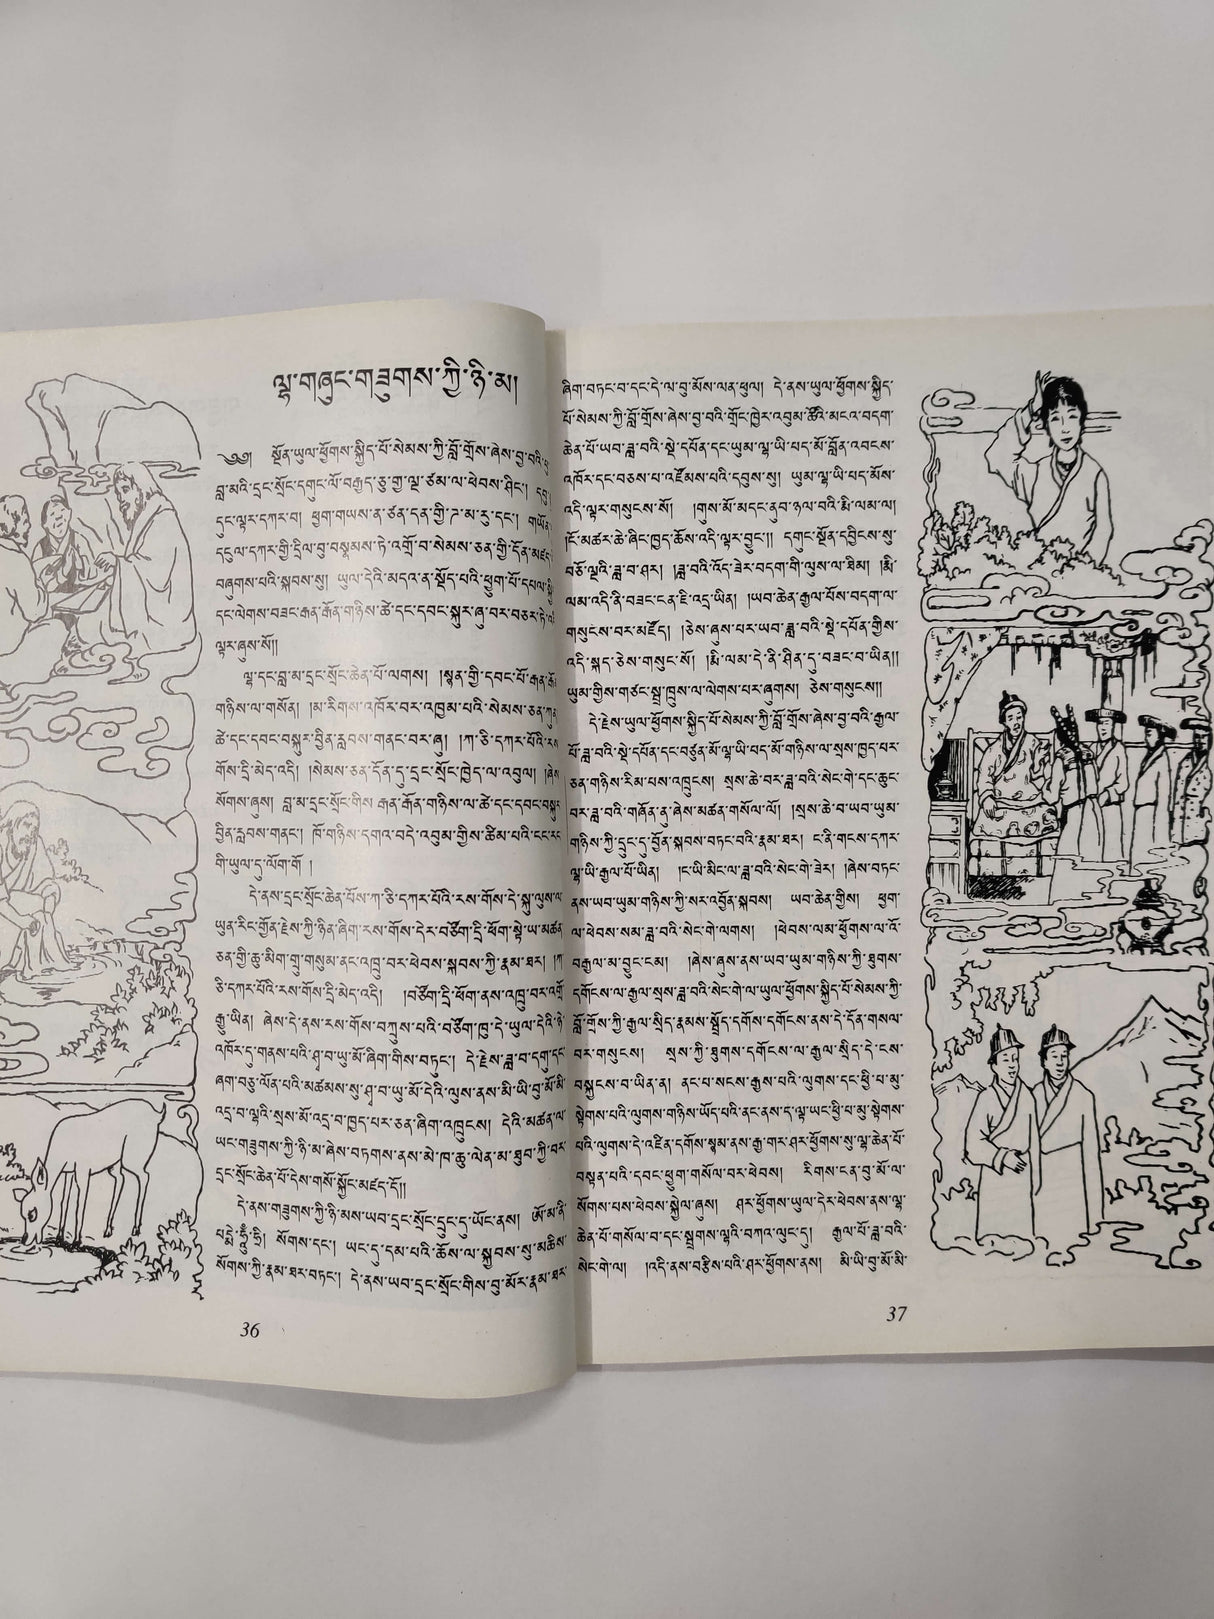 ལྷ་གཞུང་གཟུགས་ཀྱི་ཉི་མ།
༄༅། སྔོན་ཡུལ་ཕྱོགས་སྐྱིད་པོ་སེམས་ཀྱི་བློ་གྲོས་ཞེས་བྱ་བའི་
བླ་མའི་དྲང་སྲོང་དགུང་ལོ་བརྒྱད་ཅུ་གྱ་ལྔ་ཙམ་ལ་ཕེབས་ཤིང་།
དུང་ལྟར་དཀར་བ། ཕྱག་གཡས་ན་ཙན་དན་གྱི་ཌ་མ་རུ་དང་། གཡོན་
དངུལ་དཀར་གྱི་དྲིལ་བུ་བསྣམས་ཏེ་འགྲོ་བ་སེམས་ཅན་གྱི་དོན་མཛད་
བཞུགས་པའི་སྐབས་སུ། ཡུལ་དེའི་མདའ་ན་སྡོད་པའི་ཕྱུག་པོ་དཔལ་སྐྱི
དང་ལེགས་བཟང་རྒན་རྒོན་གཉིས་ཚེ་དང་དབང་སྐུར་ཞུ་བར་བཅར་ཏེ་
ལྟར་ཞུས་སོ།།
ལྷ་དང་བླ་མ་དྲང་སྲོང་ཆེན་པོ་ལགས། །སྙན་གྱི་དབང་པོ་རྒན་རྒོན་
གཉིས་ལ་གསོན། །མ་རིགས་འཁོར་བར་འཁྱམ་པའི་སེམས་ཅན་ཀུན་
ཚེ་དང་དབང་བསྐུར་བྱིན་རླབས་གནང་བར་ཞུ། །ཀ་ཅི་དཀར་པོའི་རས་
གོས་དྲི་མེད་འདི། །སེམས་ཅན་དོན་དུ་དྲང་སྲོང་ཁྱེད་ལ་འབུལ། །ཞེས་
སོགས་ཞུས། བླ་མ་དྲང་སྲོང་གིས་རྒན་རྒོན་གཉིས་ལ་ཚེ་དང་དབང་བསྐུར་
བྱིན་རླབས་གནང་། ཁོ་གཉིས་དགའ་བདེ་འབུམ་གྱིས་ཚིམ་པའི་ངང་རང་
གི་ཡུལ་དུ་ལོག་གོ །
དེ་ནས་དྲང་སྲོང་ཆེན་པོས་ཀ་ཅི་དཀར་པོའི་རས་གོས་དེ་སྐུ་ལུས་ལ་
ཡུན་རིང་གྱོན་རྗེས་ཀྱི་ཉིན་ཞིག་རས་གོས་དེར་བཙོག་དྲི་ཕོག་སྟེ་ཡ་མཚན་
ཅན་གྱི་ཆུ་མིག་གྲུ་གསུམ་ནང་འཁྲུ་བར་ཕེབས་སྐབས་ཀྱི་རྣམ་ཐར། །ཀ་
ཅི་དཀར་པོའི་རས་གོས་དྲི་མེད་འདི། །བཙོག་དྲི་ཕོག་ནས་འཁྲུ་བར་འགྲོ་
རྒྱུ་ཡིན། ཞེས་དེ་ནས་རས་གོས་བཀྲུས་པའི་བཙོག་ཁུ་དེ་ཡུལ་དེའི་ཉེ་
འཁོར་དུ་གནས་པའི་ཤྭ་བ་ཡུ་མོ་ཞིག་གིས་བཏུང་། དེ་རྗེས་ཟླ་བ་དགུ་དང་
ཞག་བཅུ་ལོན་པའི་མཚམས་སུ་ཤྭ་བ་ཡུ་མོ་དེའི་ལུས་ནས་མི་ཡི་བུ་མོ་མི་
འདྲ་བ་ལྷའི་སྲས་མོ་འདྲ་བ་ཁྱད་པར་ཅན་ཞིག་འཁྲུངས། དེའི་མཚན་ལ་
ཡང་གཟུགས་ཀྱི་ཉི་མ་ཞེས་བཏགས་ནས་མེ་ཁ་ཆུ་ལེན་མ་ཐུབ་ཀྱི་བར་
དྲང་སྲོང་ཆེན་པོ་དེས་གསོ་སྐྱོང་མཛད་དོ།།
དེ་ནས་གཟུགས་ཀྱི་ཉི་མས་ཡབ་དྲང་སྲོང་དྲུང་དུ་ཡོང་ནས། ཨོཾ་མ་ཎི་
པདྨེ་ཧཱུྃ་ཧྲི། སོགས་དང་། ཡང་དུ་དམ་པའི་ཆོས་ལ་སྐྱབས་སུ་མཆིས་
སོགས་ཀྱི་རྣམ་ཐར་བཏང་། དེ་ནས་ཡབ་དྲང་སྲོང་གིས་བུ་མོར་རྣམ་ཐར་
36
ཞིག་བཏང་བ་དང་དེ་ལ་བུ་མོས་ལན་ཕུལ། དེ་ནས་ཡུལ་ཕྱོགས་སྐྱིད་
པོ་སེམས་ཀྱི་བློ་གྲོས་ཞེས་བྱ་བའི་གྲོང་ཁྱེར་འབུམ་ཚོའི་མངའ་བདག་
ཆེན་པོ་ཡབ་ཟླ་བའི་སྡེ་དཔོན་དང་ཡུམ་ལྷ་ཡི་པད་མོ་བློན་འབངས་
འཁོར་དང་བཅས་པ་འཛོམས་པའི་དབུས་སུ། ཡུམ་ལྷ་ཡི་པད་མོས་
འདི་ལྟར་གསུངས་སོ། །གུས་མོ་མདང་ནུབ་ཉལ་བའི་རྨི་ལམ་ལ།
།ངོ་མཚར་ཆེ་ཞིང་ཁྱད་ཆོས་འདི་ལྟར་བྱུང་།། དགུང་སྔོན་དབྱིངས་སུ་
བཅོ་ལྔའི་ཟླ་བ་ཤར། །ཟླ་བའི་འོད་ཟེར་བདག་གི་ལུས་ལ་ཐིམ། །རྨི་
ལམ་འདི་ནི་བཟང་ངན་ཇི་འདྲ་ཡིན། །ཡབ་ཆེན་རྒྱལ་པོས་བདག་ལ་
གསུངས་བར་མཛོད། །ཅེས་ཞུས་པར་ཡབ་ཟླ་བའི་སྡེ་དཔོན་གྱིས་
འདི་སྐད་ཅེས་གསུང་སོ། །རྨི་ལམ་དེ་ནི་ཤིན་ཏུ་བཟང་བ་ཡིན།།
ཡུམ་གྱིས་གཙང་སྦྲ་ཁྲུས་ལ་ལེགས་པར་ཞུགས། ཅེས་གསུངས།།
དེ་རྗེས་ཡུལ་ཕྱོགས་སྐྱིད་པོ་སེམས་ཀྱི་བློ་གྲོས་ཞེས་བྱ་བའི་རྒྱལ་
པོ་ཟླ་བའི་སྡེ་དཔོན་དང་བཙུན་མོ་ལྷ་ཡི་པད་མོ་གཉིས་ལ་སྲས་ཁྱད་པར་
ཅན་གཉིས་རིམ་པས་འཁྲུངས། སྲས་ཆེ་བར་ཟླ་བའི་སེང་གེ་དང་ཆུང་
བར་ཟླ་བའི་གཞོན་ནུ་ཞེས་མཚན་གསོལ་ལོ། །སྲས་ཆེ་བ་ཡབ་ཡུམ་
གཉིས་ཀྱི་དྲུང་དུ་བྱོན་སྐབས་བཏང་བའི་རྣམ་ཐར། ང་ནི་གངས་དཀར་
ལྷ་ཡི་རྒྱལ་པོ་ཡིན། །ང་ཡི་མིང་ལ་ཟླ་བའི་སེང་གེ་ཟེར། །ཞེས་བཏང་
ནས་ཡབ་ཡུམ་གཉིས་ཀྱི་སར་འབྱོན་སྐབས། ཡབ་ཆེན་གྱིས། ཕྱག་
ལ་ཕེབས་སམ་ཟླ་བའི་སེང་གེ་ལགས། །ཕེབས་ལམ་ཕྱོགས་ལ་འོ་
བརྒྱལ་མ་བྱུང་ངམ། །ཞེས་ཞུས་ནས་ཡབ་ཡུམ་གཉིས་ཀྱི་ཐུགས་
དགོངས་ལ་རྒྱལ་སྲས་ཟླ་བའི་སེང་གེ་ལ་ཡུལ་ཕྱོགས་སྐྱིད་པོ་སེམས་ཀྱི་
བློ་གྲོས་ཀྱི་རྒྱལ་སྲིད་རྣམས་སྤྲོད་དགོས་དགོངས་ནས་དེ་དོན་གསལ་
བར་གསུངས། སྲས་ཀྱི་ཐུགས་དགོངས་ལ་རྒྱལ་སྲིད་དེ་ངས་
བསྐྱངས་བ་ཡིན་ན། ནང་པ་སངས་རྒྱས་པའི་ལུགས་དང་ཕྱི་པ་མུ་
སྟེགས་པའི་ལུགས་གཉིས་ཡོད་པའི་ནང་ནས་ད་ལྟ་ཡང་ཕྱི་པ་མུ་སྟེགས་
པའི་ལུགས་དེ་འཛིན་དགོས་སྙམ་ནས་རྒྱ་གར་ཤར་ཕྱོགས་སུ་ལྷ་ཆེན་པོ་
བསྟན་པའི་དབང་ཕྱུག་གསོལ་བར་ཕེབས། རིགས་ངན་བུ་མོ་ལ་
སོགས་པས་ཕེབས་སྐྱེལ་ཞུས། ཤར་ཕྱོགས་ཡུལ་དེར་ཕེབས་ནས་ལྷ་
ཆེན་པོ་གསོལ་བ་དང་སྦྲགས་ལྷའི་བཀའ་ལུང་དུ། རྒྱལ་པོ་ཟླ་བའི་
སེང་གེ་ལ། །འདི་ནས་བརྩིས་པའི་ཤར་ཕྱོགས་ནས། མི་ཡི་བུ་མོ་མི་
37